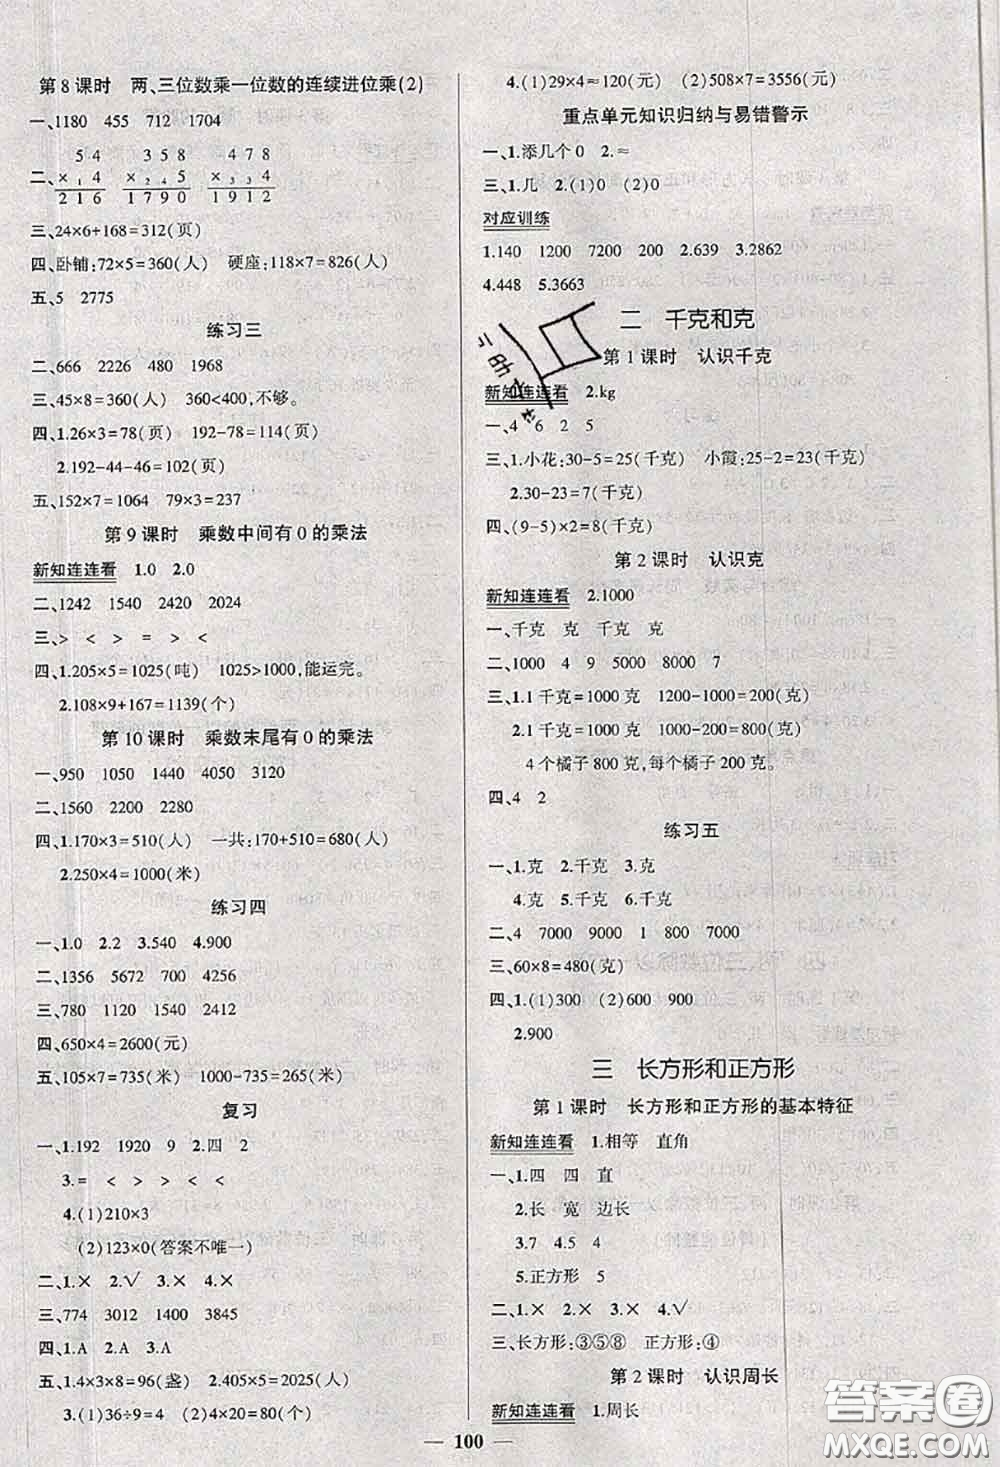 第8课时 两、三位数乘一位数的连续进位乘(2)
一、1180 455 712 1704
54 358 478
二、×₁4 ×₂₄5 ×₃₃4
216 1790 1912
三、24×6+168=312(页)
四、卧铺:72×5=360(人) 硬座:118×7=826(人)
五、5 2775
练习三
二、666 2226 480 1968
三、45×8=360(人) 360<400,不够。
四、1.26×3=78(页) 192-78=114(页)
2.192-44-46=102(页)
五、152×7=1064 79×3=237
第9课时 乘数中间有0的乘法
新知连连看 1.0 2.0
二、1242 1540 2420 2024
三、> < > = > <
四、1.205×5=1025(吨) 1025>1000,能运完。
2.108×9+167=1139(个)
第10课时 乘数末尾有0的乘法
一、950 1050 1440 4050 3120
二、1560 2200 2280
四、1.170×3=510(人) 一共:170+510=680(人)
2.250×4=1000(米)
练习四
一、1.0 2.2 3.540 4.900
二、1356 5672 700 4256
三、780 1120 1540 2412
四、650×4=2600(元)
五、105×7=735(米) 1000-735=265(米)
复习
一、1.192 1920 9 2.四 2
3.= < > > < <
4.(1)210×3
(2)123×0(答案不唯一)
二、1.× 2.√ 3.× 4.×
三、774 3012 1400 3845
四、1.A 2.A 3.A
五、1.4×3×8=96(盏) 2.405×5=2025(人)
3.(1)36÷9=4 (2)4×20=80(个)
4.(1)29×4≈120(元) (2)508×7=3556(元)
重点单元知识归纳与易错警示
一、1.添几个0 2.≈
三、1.几 2.(1)0 (2)0
对应训练
1.140 1200 7200 200 2.639 3.2862
4.448 5.3663
二 千克和克
第1课时 认识千克
新知连连看 2.kg
一、4 6 2 5
三、1.小花:30-5=25(千克) 小霞:25-2=23(千克)
2.30-23=7(千克)
四、(9-5)×2=8(千克)
第2课时 认识克
新知连连看 2.1000
一、千克 克 千克 克
二、1000 4 9 5000 8000 7
三、1.1千克=1000克 1200-1000=200(克)
2.1千克=1000克 1000-200=800(克)
4个橘子800克,每个橘子200克。
四、4 2
练习五
一、1.克 2.千克 3.克
4.克 5.千克 6.千克
二、4 7000 9000 1 800 7000
三、60×8=480(克)
四、1.(1)300 (2)600 900
2.900
三 长方形和正方形
第1课时 长方形和正方形的基本特征
新知连连看 1.相等 直角
一、1.四 四 直
2.长 宽 边长
3.7 4.5 5
5.正方形 5
二、1.× 2.× 3.× 4.√
三、长方形:③⑤⑧ 正方形:④
第2课时 认识周长
新知连连看 1.周长
100
答案圈
MXQE.COM